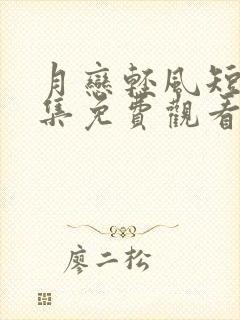 月戀輕風短
集免費觀看
廖二松